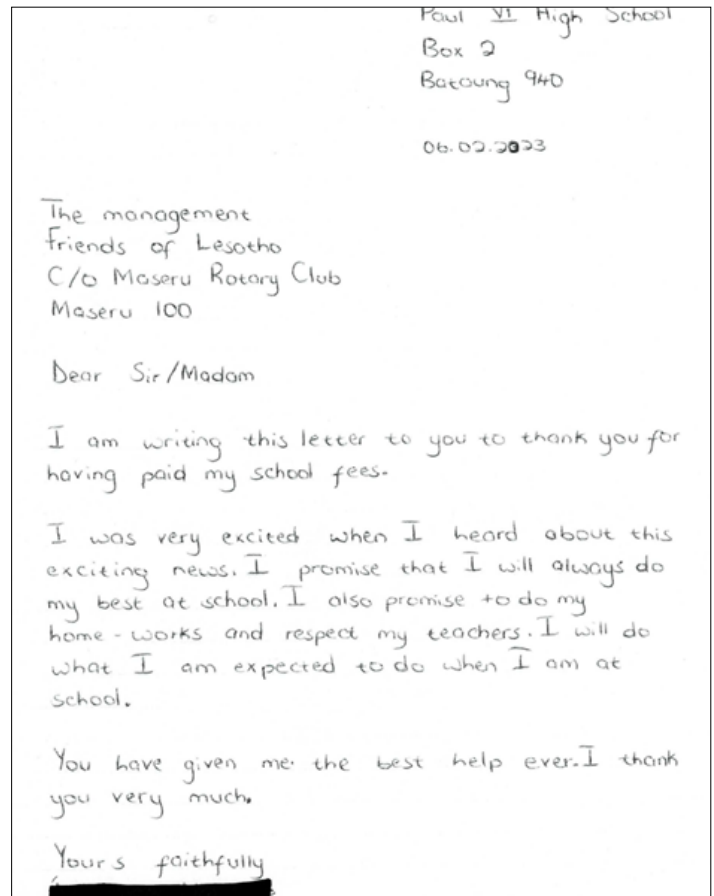 Paul VI High School
Box 2
Batoung 940
06.02.2023
The management
Friends of Lesotho
C/o Maseru Rotary Club
Maseru 100
Dear Sir/Madam
I am writing this letter to you to thank you for
having paid my school fees.
I was very excited when I heard about this
exciting news. I promise that I will always do
my best at school. I also promise to do my
home-works and respect my teachers. I will do
what I am expected to do when I am at
school.
You have given me the best help ever. I thank
you very much.
Yours faithfully